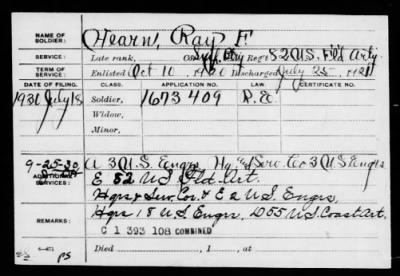 NAME OF SOLDIER: Hearn, Ray F.
SERVICE: Late rank, Co. Reg't 82 U.S. Fld Arty.
TERM OF SERVICE: Enlisted Oct 10, 1920 Discharged July 25, 1921
DATE OF FILING. CLASS. APPLICATION NO. LAW. CERTIFICATE NO.
1930 July 18 Soldier, 1673409
Widow,
Minor,
9-25-30 A 3 U.S. Engrs Hq and Serv. Co 3 U.S. Engrs
ADDITIONAL SERVICES: E 82 U.S. Fld. Art.
Hqrs & Serv. Co. & E 2 U.S. Engrs,
REMARKS: Hqrs 18 U.S. Engrs, D 55 U.S. Coast Art.
C 1 393 108 COMBINED
Died , 1 , at